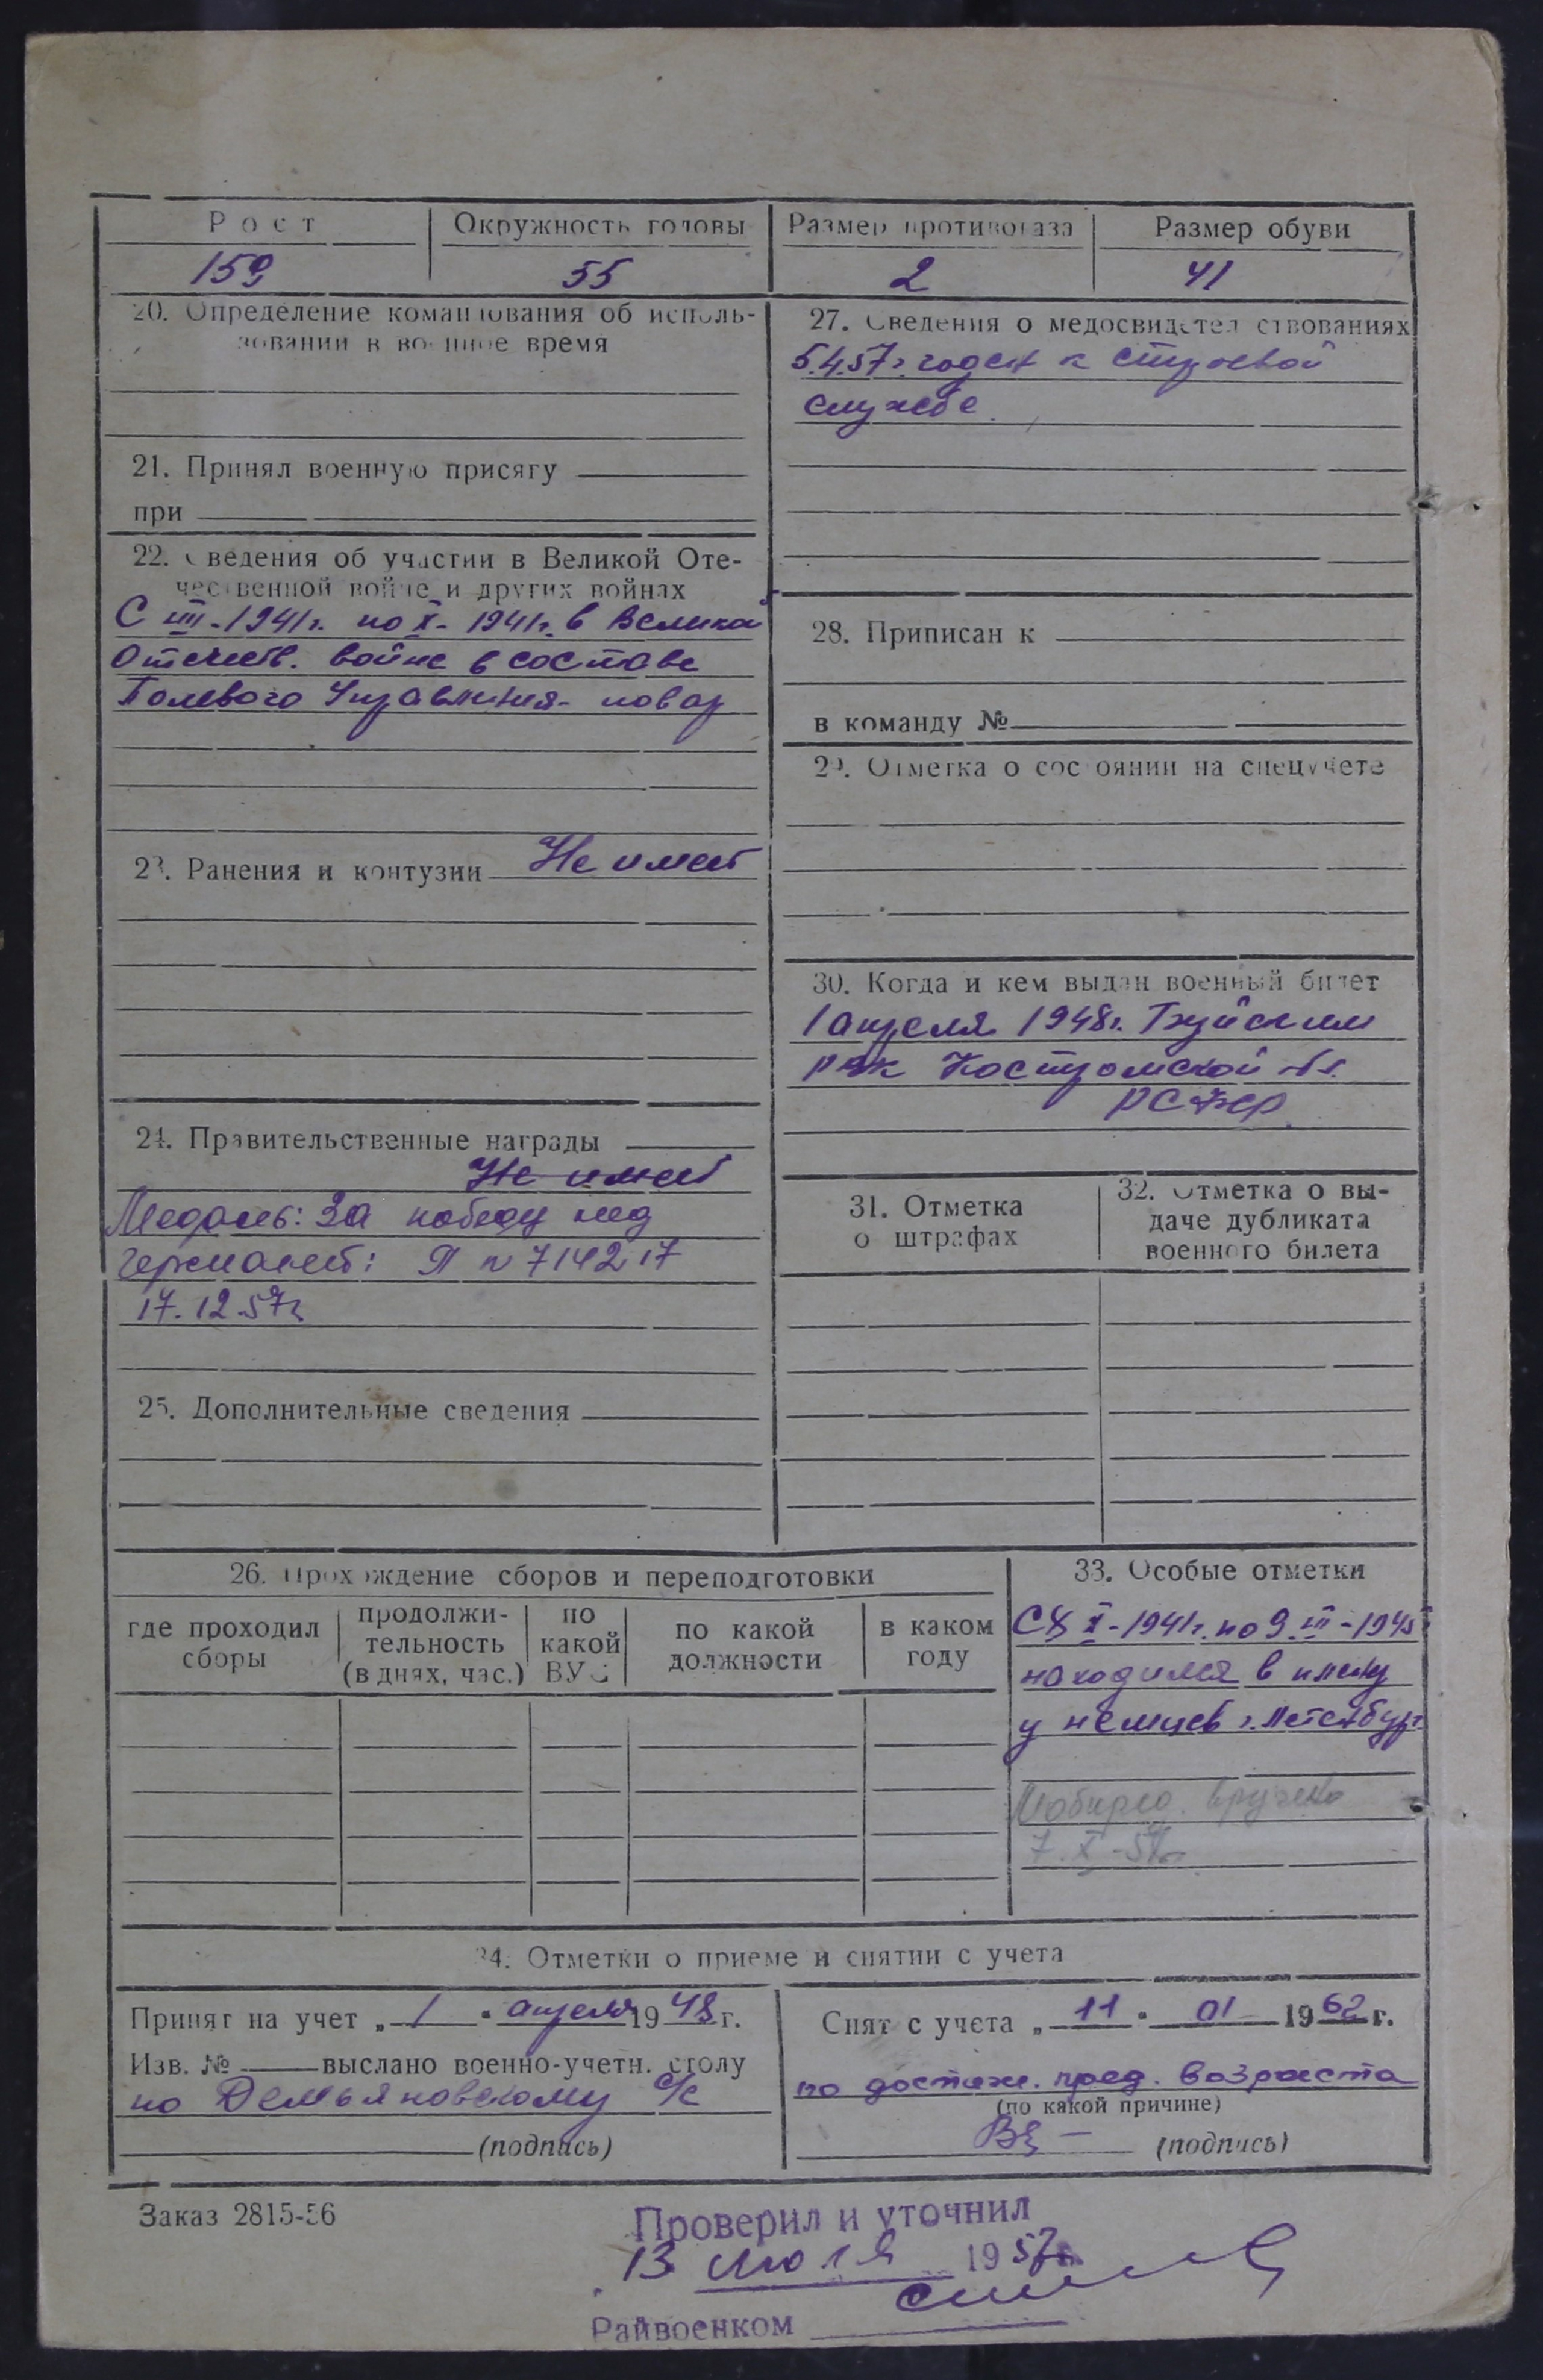 Рост
Окружность головы
Размер противогаза
Размер обуви
159
55
2
41
20. Определение командования об исполь-
зовании в военное время
21. Принял военную присягу
при
22. Сведения об участии в Великой Оте-
чественной войне и других войнах
С VIII-1941г. по X-1941г. в Великой
Отечеств. войне в составе
Полевого Управления - повар
23. Ранения и контузии Не имеет
24. Правительственные награды
Не имеет
Медаль: За победу над
Германией: П N 714217
17.12.57г
25. Дополнительные сведения
27. Сведения о медосвидетельствованиях
5.4.57г. годен к строевой
службе.
28. Приписан к
в команду №
29. Отметка о состоянии на спецучете
30. Когда и кем выдан военный билет
1 апреля 1948г. Буйским
РВК Костромской обл.
РСФСР
31. Отметка
о штрафах
32. Отметка о вы-
даче дубликата
военного билета
26. Прохождение сборов и переподготовки
где проходил
сборы
продолжи-
тельность
(в днях, час.)
по
какой
ВУС
по какой
должности
в каком
году
33. Особые отметки
С X-1941г. по 9.III-1945
находился в плену
у немцев г.
Мобпред. вручено
7.X-57г.
34. Отметки о приеме и снятии с учета
Принят на учет „1" апреля 1948 г.
Изв. № выслано военно-учетн. столу
по Демьяновскому с/с
(подпись)
Снят с учета „11" 01 1962 г.
по достиж. пред. возраста
(по какой причине)
(подпись)
Заказ 2815-56
Проверил и уточнил
13 июля 1957г.
Райвоенком